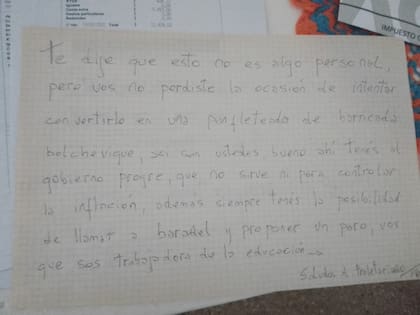 Total
IMPUESTO
te dije que esto no es algo personal,
pero vos no perdiste la ocasión de intentar
convertirlo en una panfleteada de barricada
bolchevique, asi son ustedes, bueno ahí tenés al
gobierno progre, que no sirve ni para controlar
la inflación, ademas siempre tenés la posibilidad
de llamar a baradel y proponer un paro, vos
que sos trabajadora de la educación
Saludos